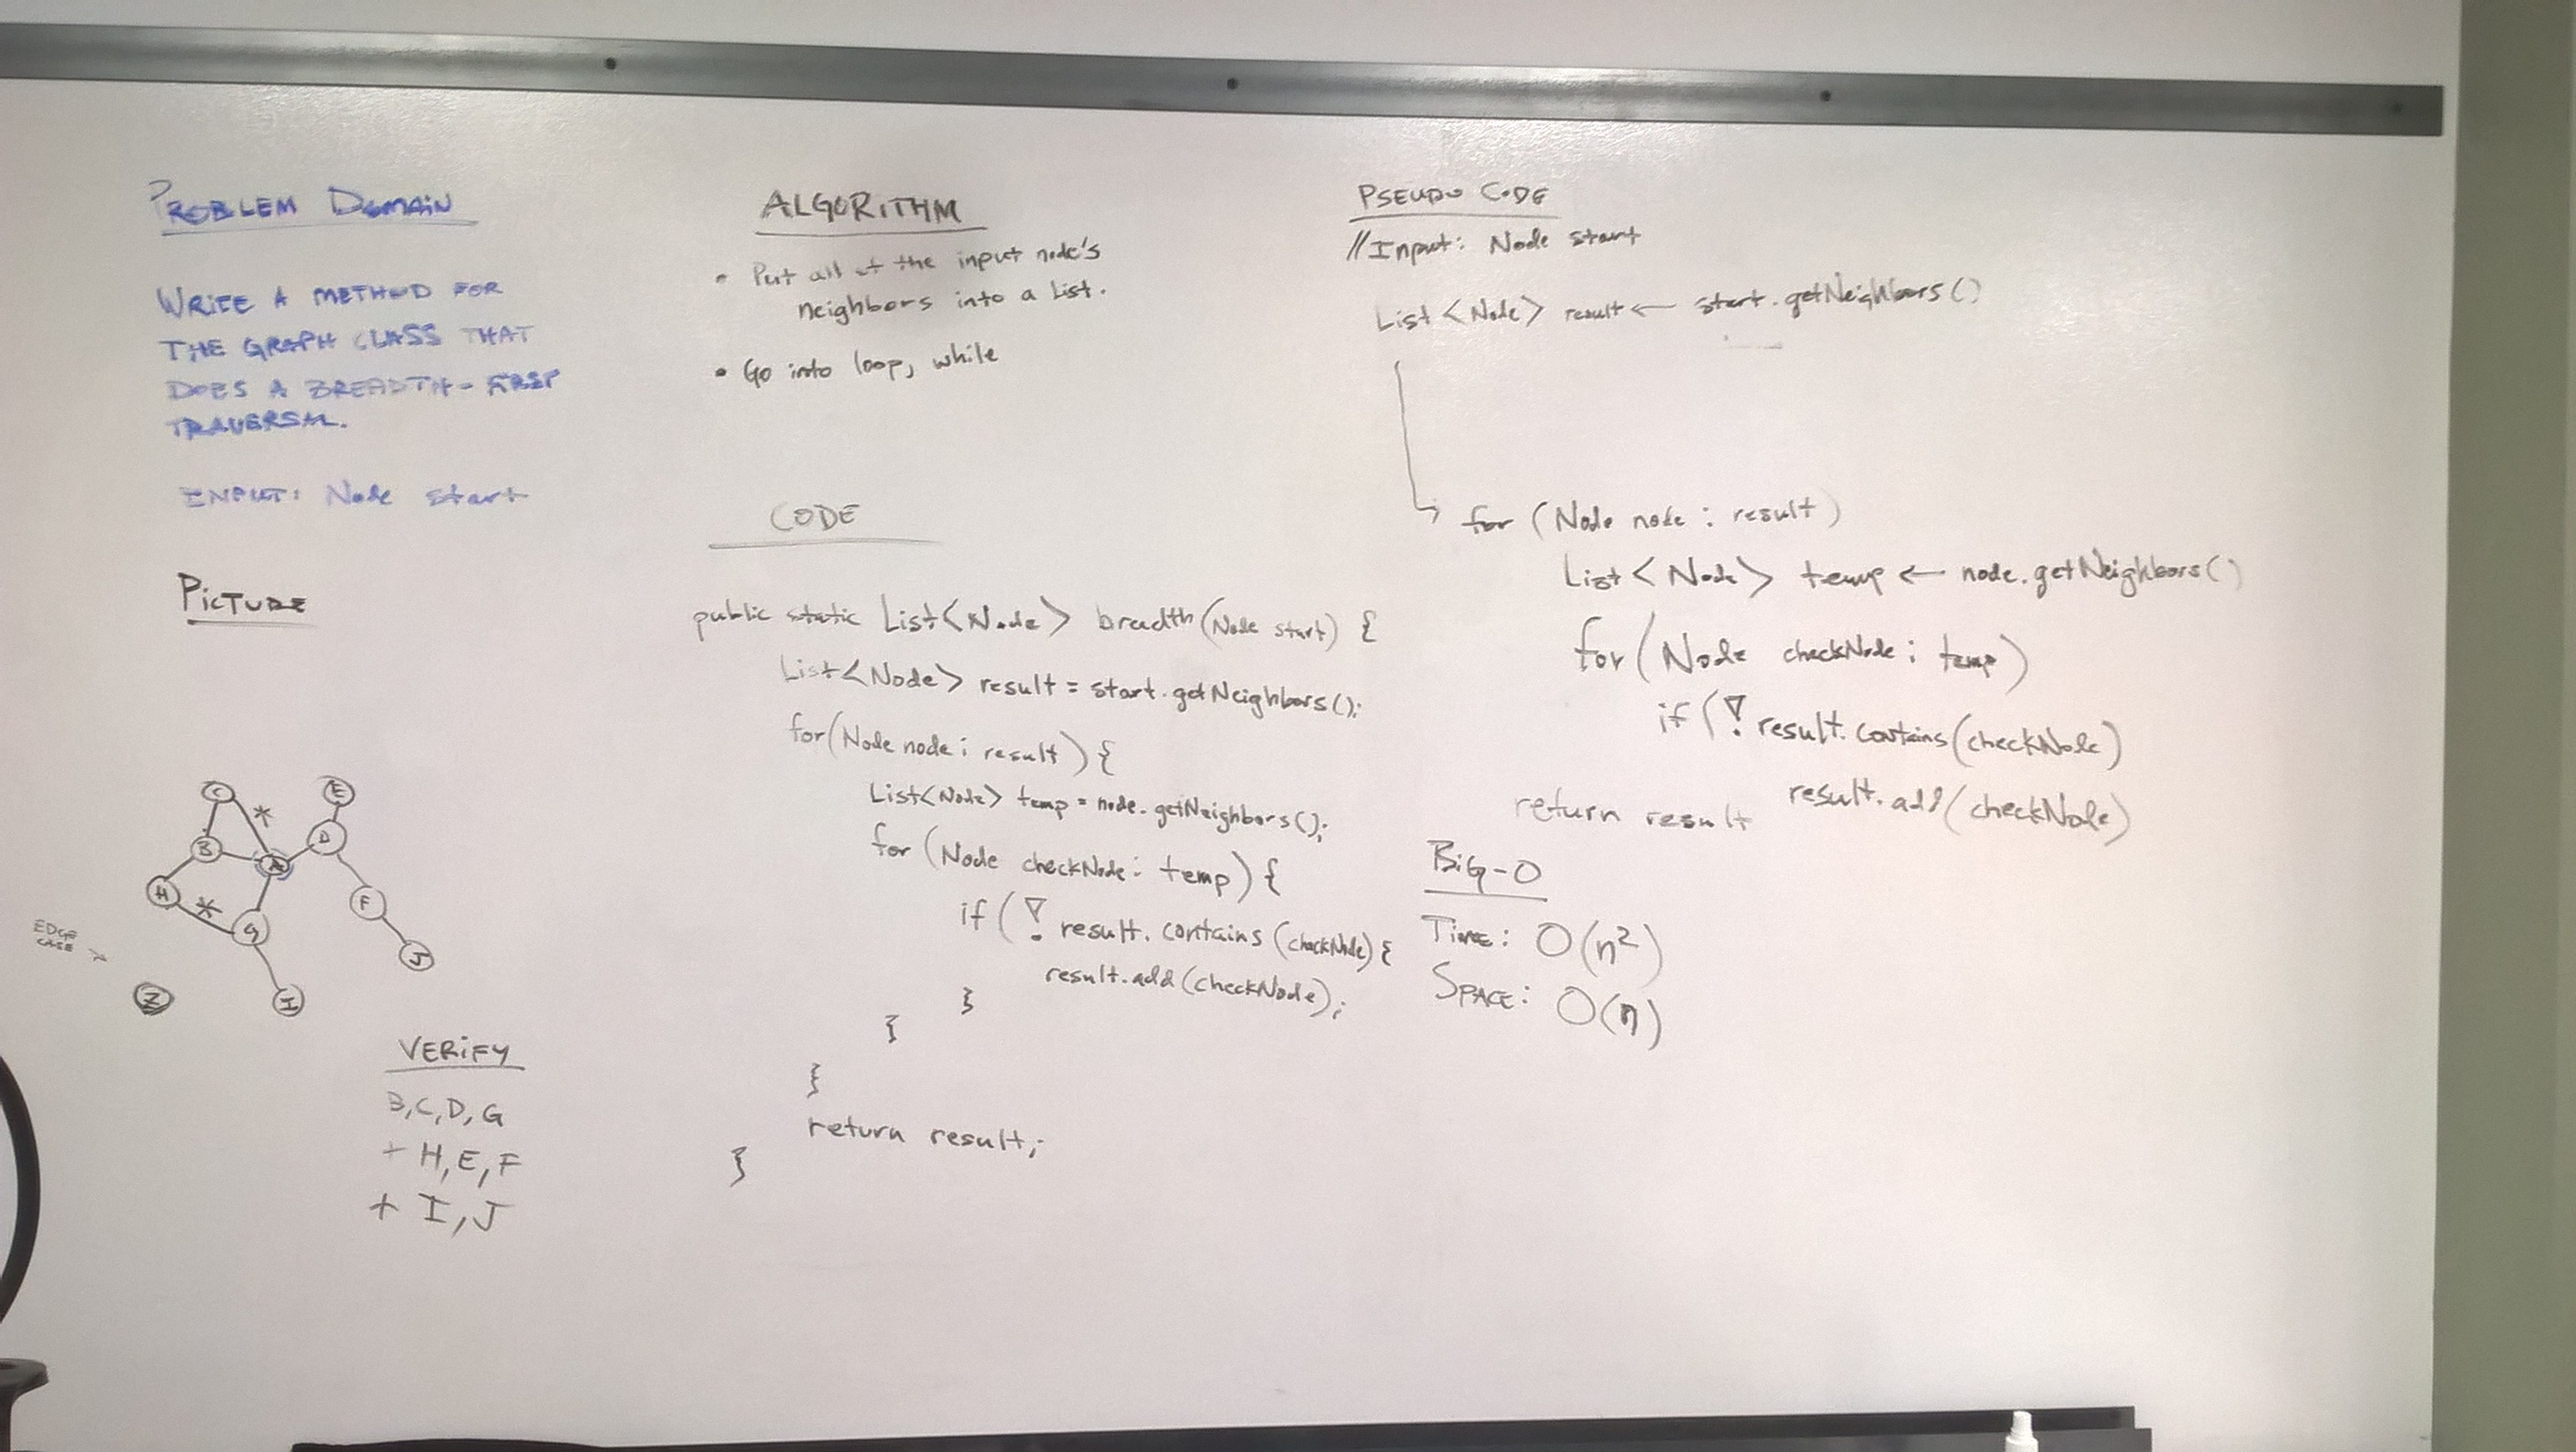 PROBLEM DOMAIN
WRITE A METHOD FOR
THE GRAPH CLASS THAT
DOES A BREADTH-FIRST
TRAVERSAL.
INPUT: Node start
PICTURE
C
*
E
B
A
D
H
*
G
F
J
EDGE
CASE
Z
I
VERIFY
B,C,D,G
+ H,E,F
+ I,J
ALGORITHM
• Put all of the input node's
neighbors into a list.
• Go into loop, while
CODE
public static List<Node> breadth(Node start) {
List<Node> result = start.getNeighbors();
for(Node node : result) {
List<Node> temp = node.getNeighbors();
for (Node checkNode : temp) {
if (! result.contains(checkNode) {
result.add(checkNode);
}
}
}
return result;
}
PSEUDO CODE
//Input: Node start
List <Node> result ← start.getNeighbors()
for (Node node : result)
List <Node> temp ← node.getNeighbors()
for (Node checkNode : temp)
if (! result.contains(checkNode)
result.add(checkNode)
return result
BIG-O
TIME: O(n²)
SPACE: O(n)